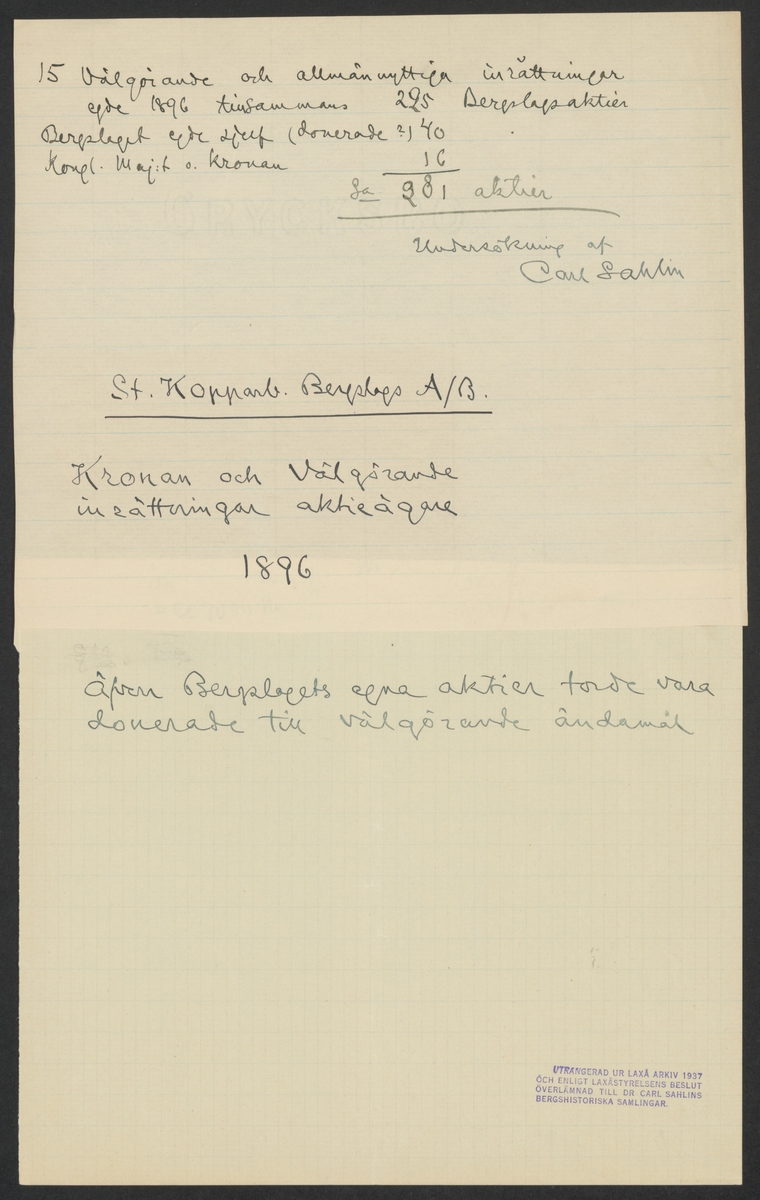 15 Välgörande och allmännyttiga inrättningar
egde 1896 tillsammans 225 Bergslagsaktier
Bergslaget egde sjelf (donerade?) 40
Kongl. Maj:t o. Kronan 16
Sa 281 aktier
Undersökning af
Carl Sahlin
St. Kopparb. Bergslags A/B.
Kronan och Välgörande
inrättningar aktieägare
1896
Äfven Bergslagets egna aktier torde vara
donerade till välgörande ändamål
UTRANGERAD UR LAXÅ ARKIV 1937
OCH ENLIGT LAXÅSTYRELSENS BESLUT
ÖVERLÄMNAD TILL DR CARL SAHLINS
BERGSHISTORISKA SAMLINGAR.